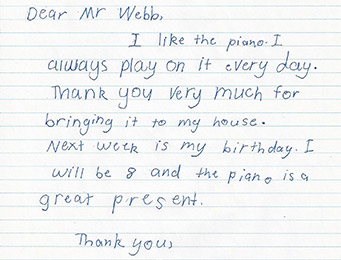 Dear Mr Webb,
I like the piano. I
always play on it every day.
Thank you very much for
bringing it to my house.
Next week is my birthday. I
will be 8 and the piano is a
great present.
Thank you,